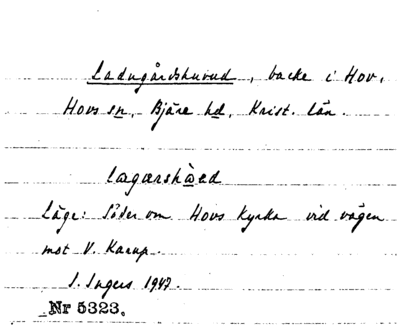 Ladugårdshuvud, backe i Hov,
Hovs sn, Bjäre hd, Krist. län.
lagærshàed
Läge: Söder om Hovs kyrka vid vägen
mot V. Karup.
I. Ingers 1947.
Nr 5323.